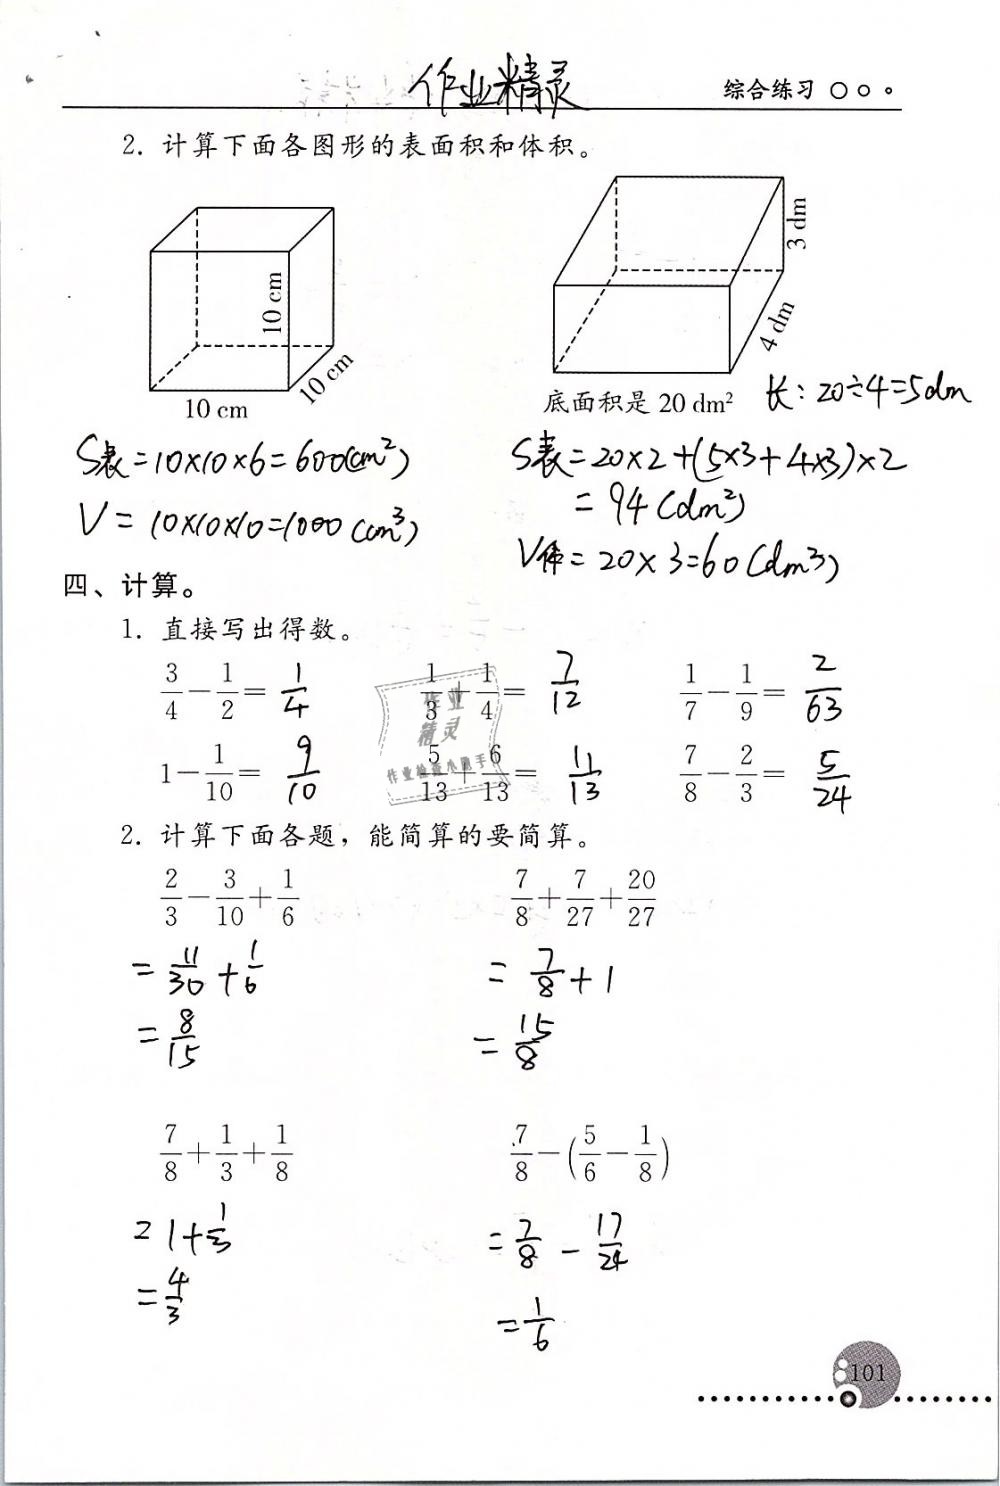 作业精灵
综合练习
2. 计算下面各图形的表面积和体积。
10 cm
10 cm
10 cm
3 dm
4 dm
底面积是 20 dm²
长：20÷4=5dm
S表=10×10×6=600(cm²)
V=10×10×10=1000(cm³)
S表=20×2+(5×3+4×3)×2
=94(dm²)
V体=20×3=60(dm³)
四、计算。
1. 直接写出得数。
3/4-1/2=1/4 1/3+1/4=7/12 1/7-1/9=2/63
1-1/10=9/10 5/13+6/13=11/13 7/8-2/3=5/24
作业
精灵
作业检查小助手
2. 计算下面各题，能简算的要简算。
2/3-3/10+1/6 7/8+7/27+20/27
=11/30+1/6 =7/8+1
=8/15 =15/8
7/8+1/3+1/8 7/8-(5/6-1/8)
=1+1/3 =7/8-17/24
=4/3 =1/6
101